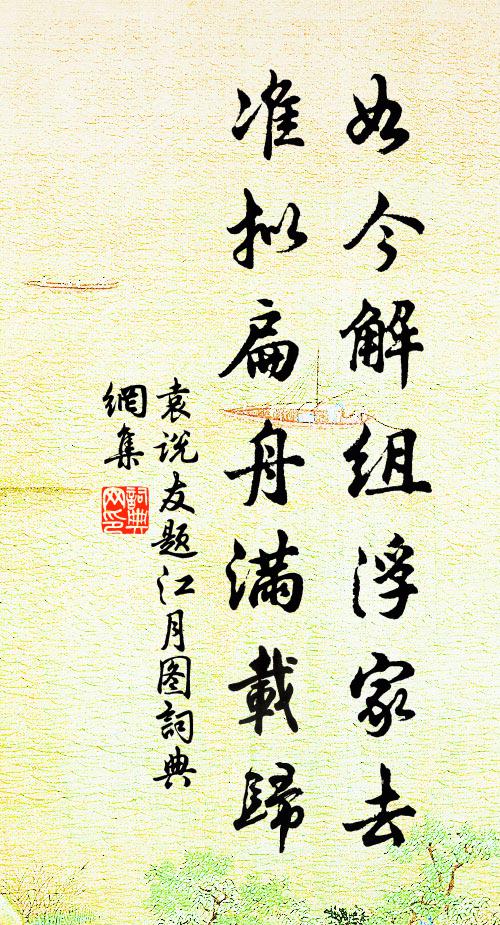 如今解組浮家去
准拟扁舟满載歸
袁说友题江月图詞典
網集
詞典
网印